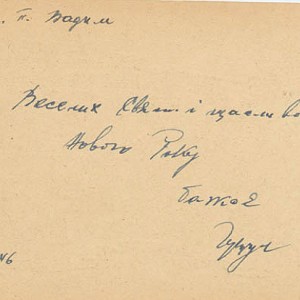 . п. Вадим
Веселих Свят і щасливо
Нового Року
бажає
Гуцул